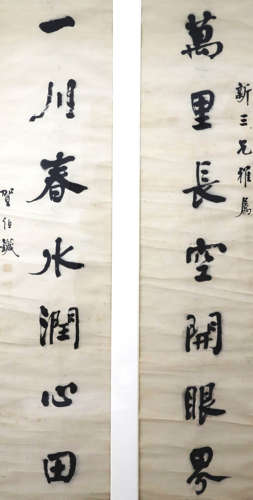 新三兄雅属
萬里長空開眼界
一川春水潤心田
贺伯鍼